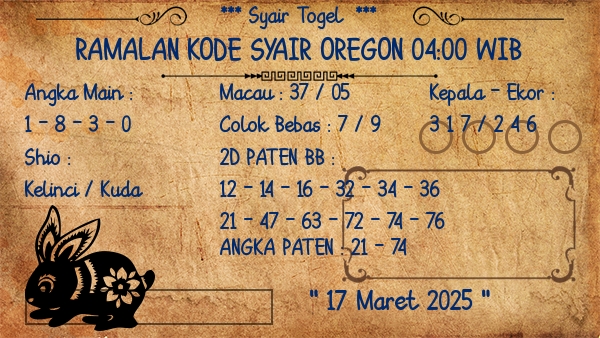 *** Syair Togel ***
RAMALAN KODE SYAIR OREGON 04:00 WIB
Angka Main :
1 - 8 - 3 - 0
Shio :
Kelinci / Kuda
Macau : 37 / 05
Colok Bebas : 7 / 9
2D PATEN BB :
12 - 14 - 16 - 32 - 34 - 36
21 - 47 - 63 - 72 - 74 - 76
ANGKA PATEN : 21 - 74
Kepala - Ekor :
3 1 7 / 2 4 6
" 17 Maret 2025 "